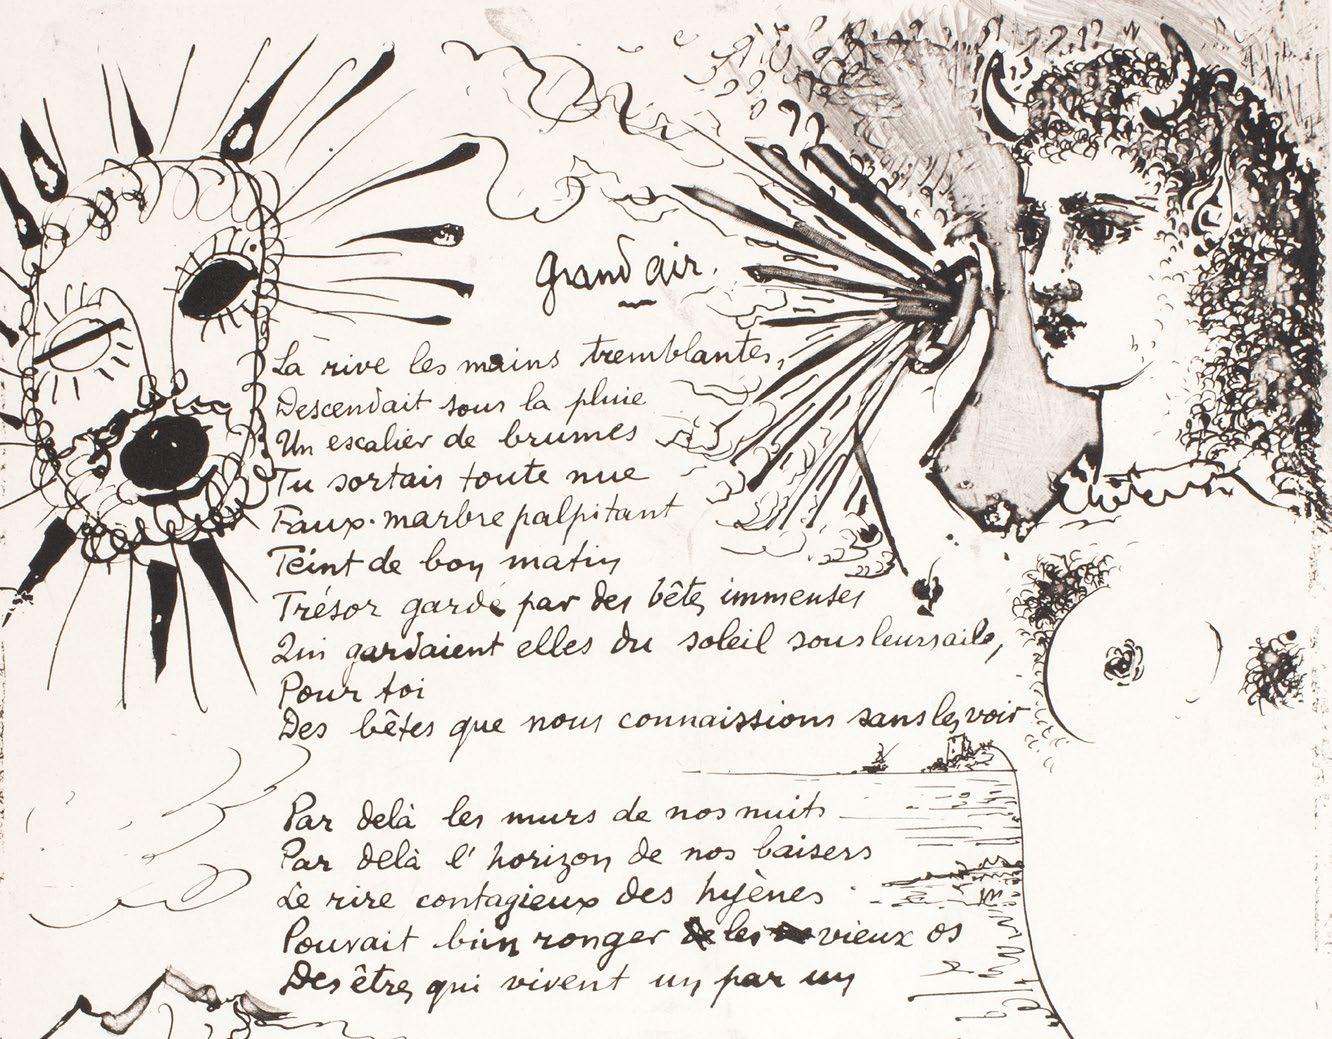 Grand air.
La rive les mains tremblantes,
Descendait sous la pluie
Un escalier de brumes
Tu sortais toute nue
Faux-marbre palpitant
Teint de bon matin
Trésor gardé par des bêtes immenses
Qui gardaient elles du soleil sous leurs ailes,
Pour toi
Des bêtes que nous connaissions sans les voir
Par delà les murs de nos nuits
Par delà l'horizon de nos baisers
Le rire contagieux des hyènes
Pouvait bien ronger les vieux os
Des êtres qui vivent un par un